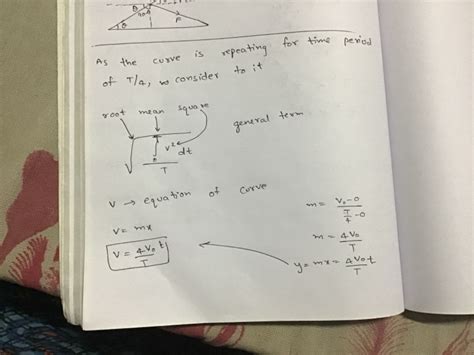 θ
θ
90-θ
A
As the curve is repeating for time period
of T/4, consider to it
root mean square
general term
√ ∫₀ᵀ v² dt
T
V → equation of curve
V = mx
V = 4V₀ t / T
m = V₀-0 / T/4 -0
m = 4V₀ / T
y = mx = 4V₀t / T